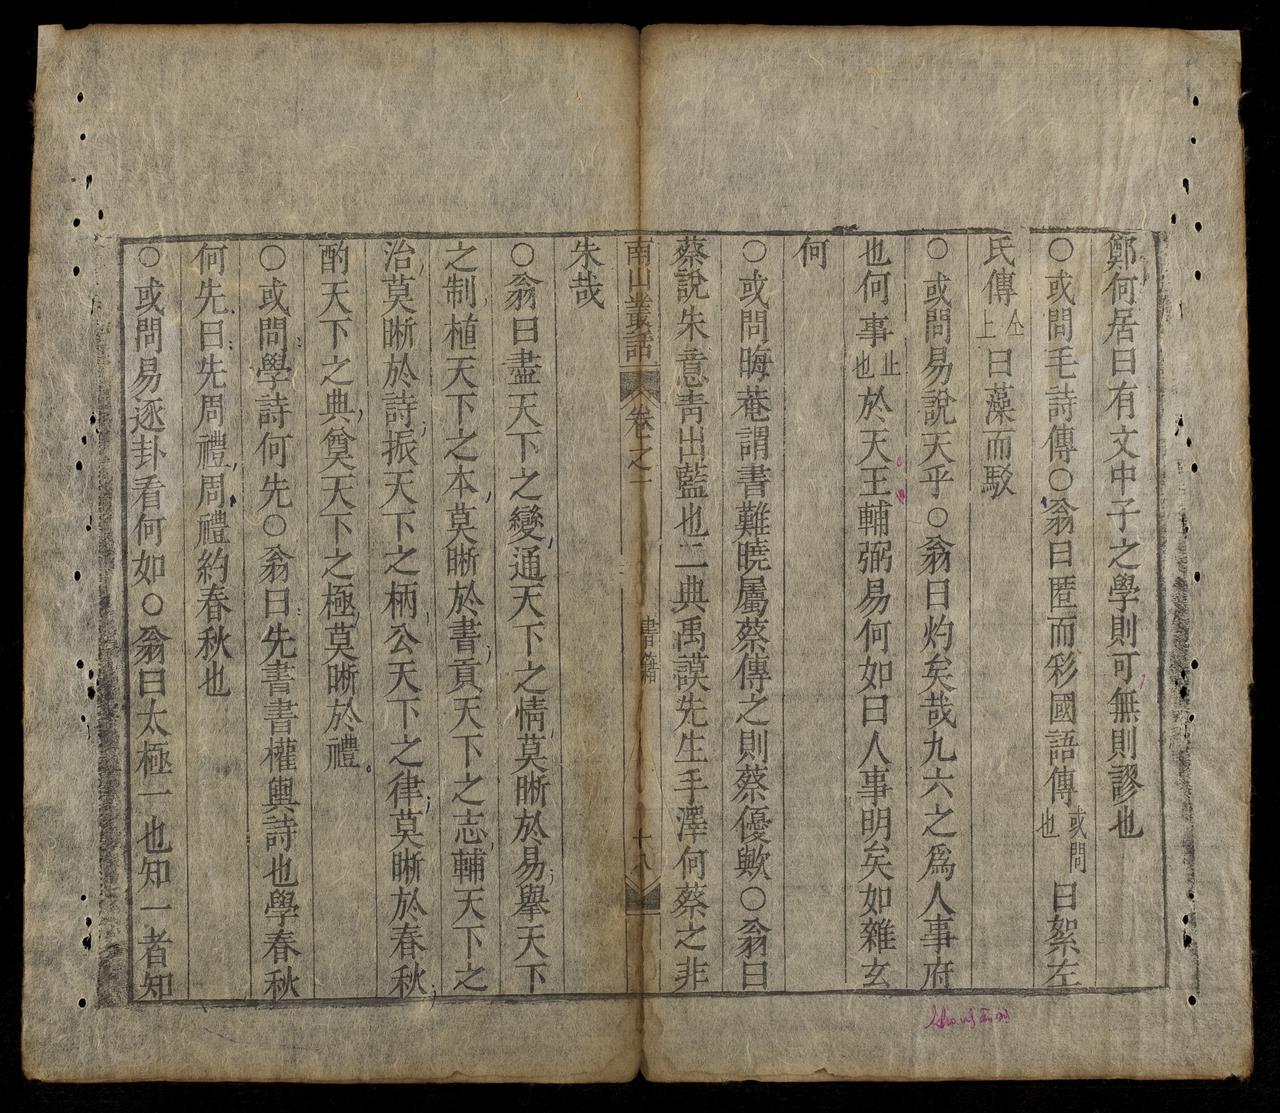 鄭何居曰有文中子之學則可無則謬也
○或問毛詩傳○翁曰匿而彩國語傳或問也曰絮左
民傳仝上曰藻而駁
○或問易說天乎○翁曰灼矣哉九六之爲人事府
也何事止也於天王輔弼易何如曰人事明矣如雜玄
何
○或問晦菴謂書難曉屬蔡傳之則蔡優歟○翁曰
蔡說朱意靑出藍也二典禹謨先生手澤何蔡之非
南山叢話 卷之一 書籍 十八
朱哉
○翁曰盡天下之變通天下之情莫晣於易擧天下
之制植天下之本莫晣於書貢天下之志輔天下之
治莫晣於詩振天下之柄公天下之律莫晣於春秋
酌天下之典奠天下之極莫晣於禮
○或問學詩何先○翁曰先書書權輿詩也學春秋
何先曰先周禮周禮約春秋也
○或問易逐卦看何如○翁曰太極一也知一者知